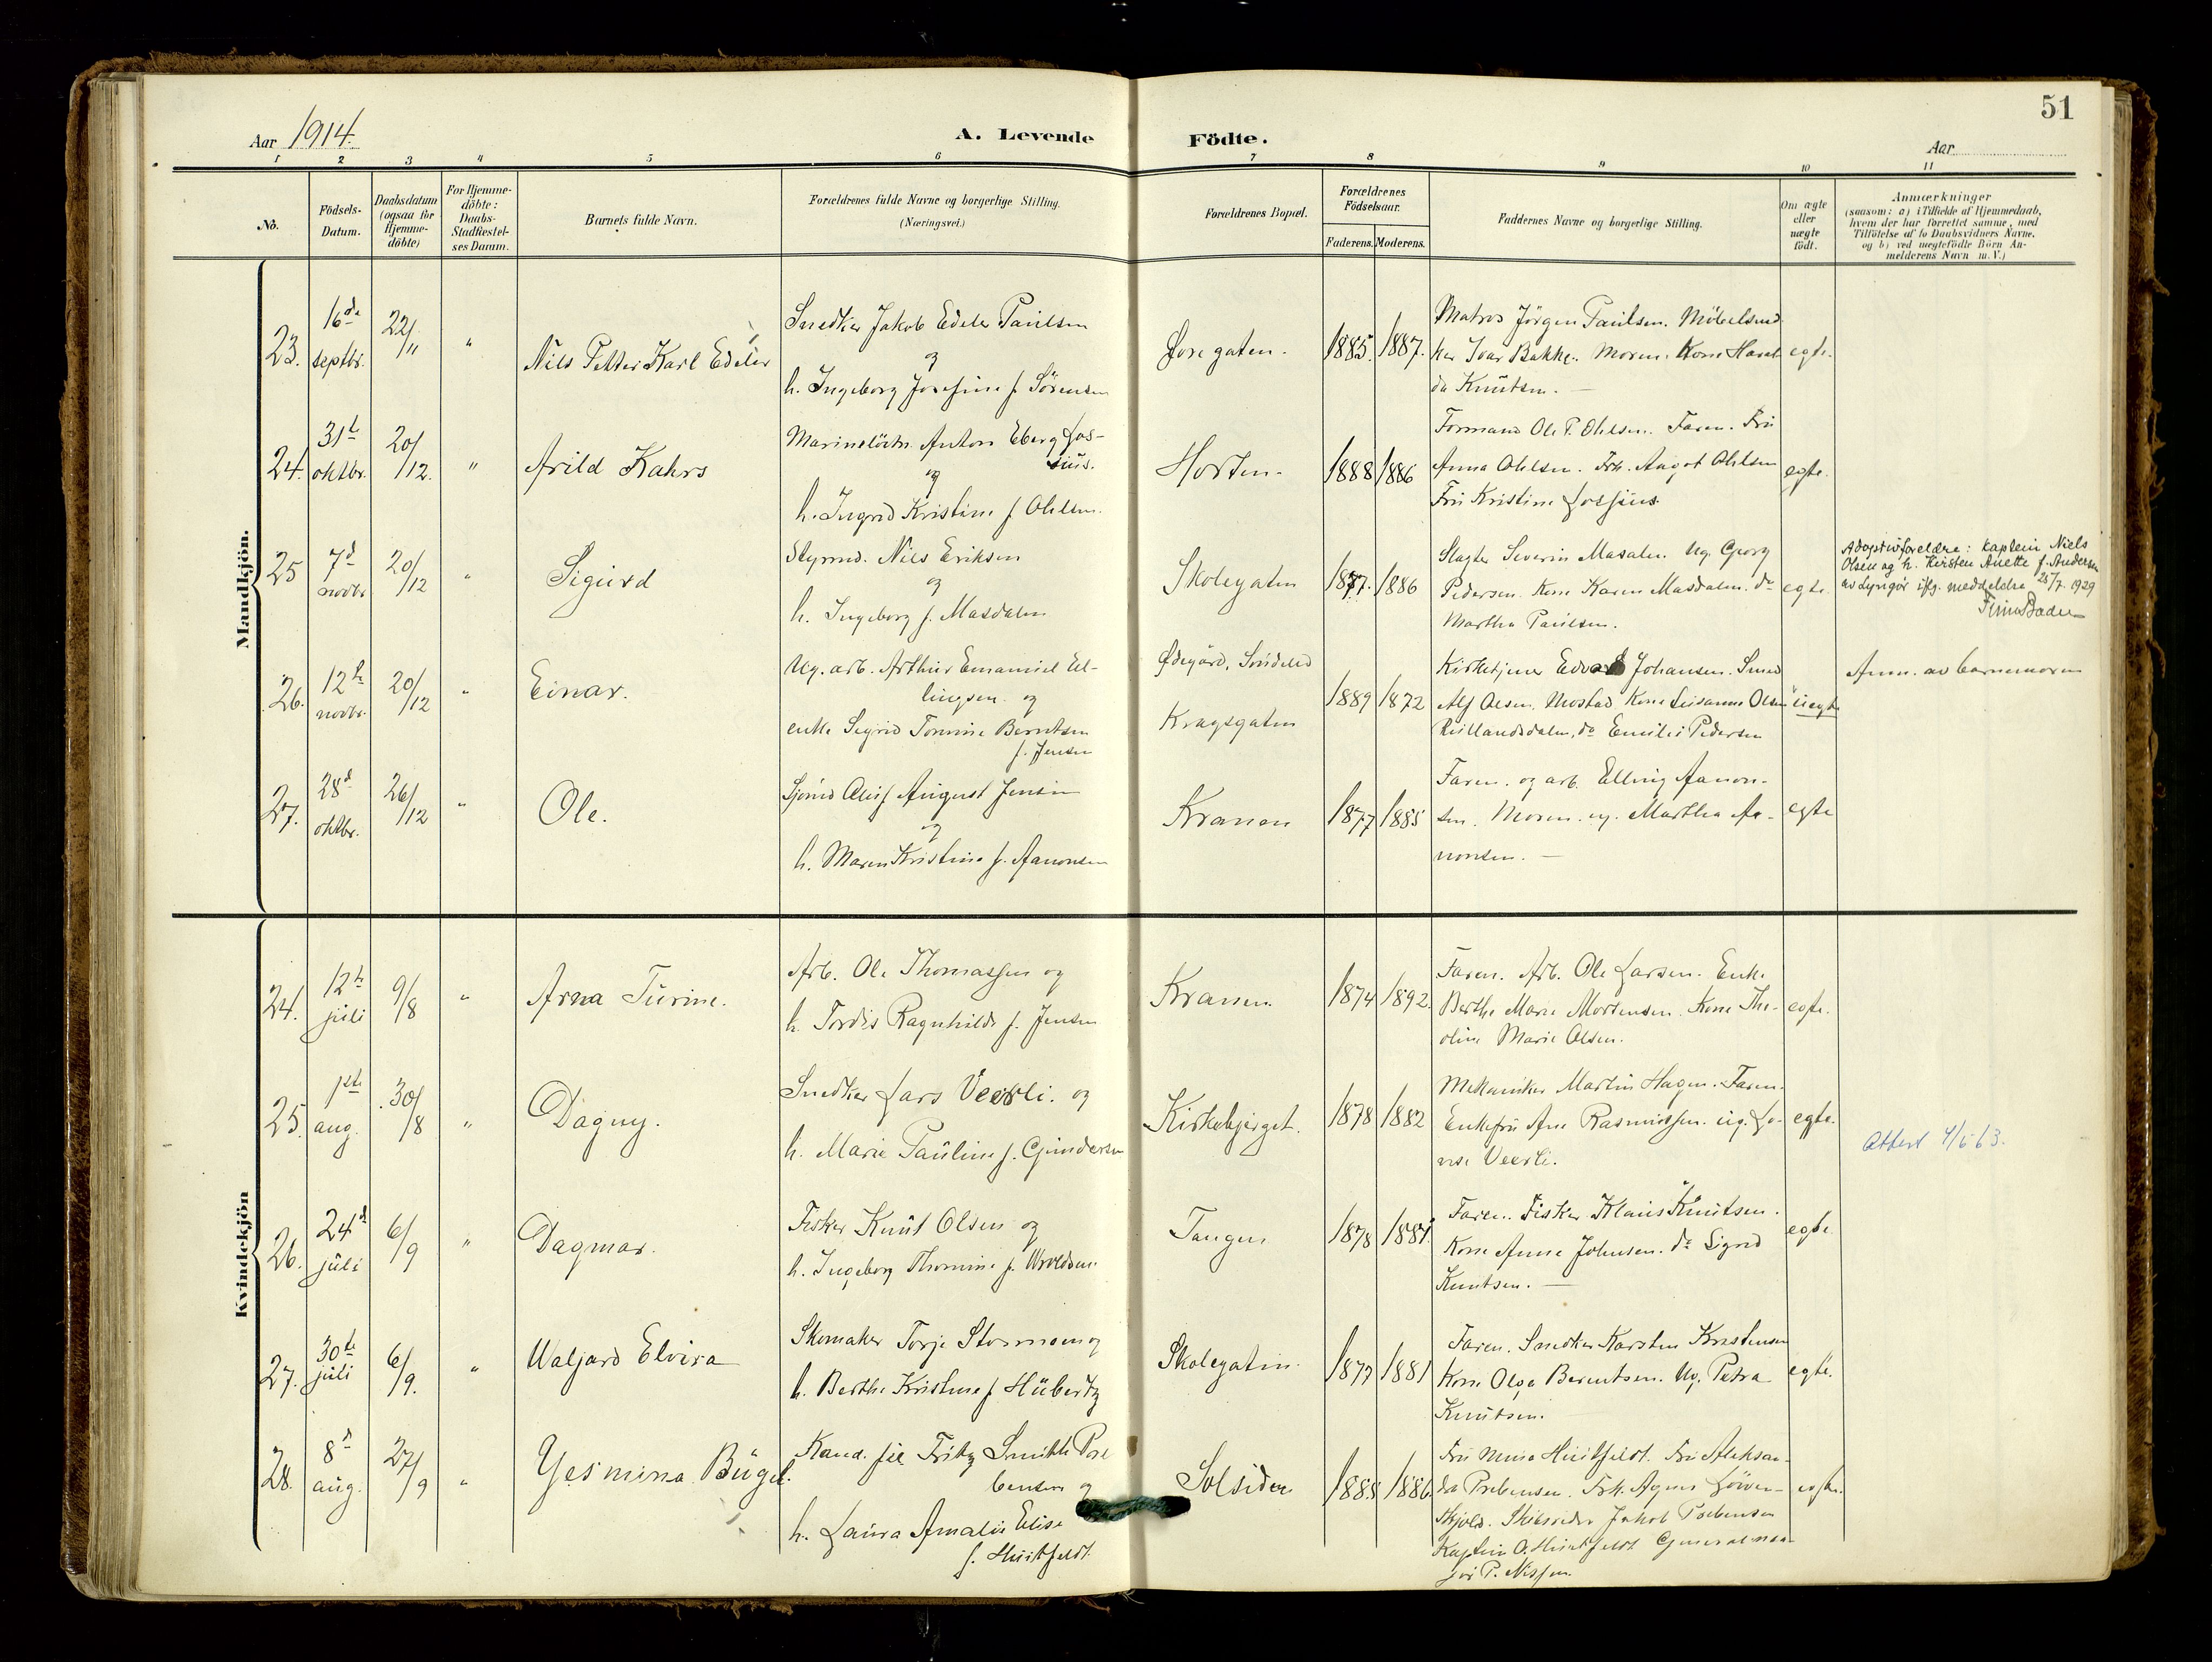 51
Aar 1914.
A. Levende Födte.
Aar
1 2 3 4 5 6 7 8 9 10 11
No.
Födsels-
Datum.
Daabsdatum
(ogsaa for
Hjemme-
döbte)
For Hjemme-
döbte:
Daabs-
Stadfæstel-
ses Datum.
Barnets fulde Navn.
Forældrenes fulde Navne og borgerlige Stilling.
(Næringsvei.)
Forældrenes Bopæl.
Forældrenes
Födselsaar.
Faderens. Moderens.
Faddernes Navne og borgerlige Stilling.
Om ægte
eller
uægte
födt.
Anmærkninger
(saasom: a) i Tilfælde af Hjemmedaab,
hvem der har forrettet samme, med
Tilföielse af to Daabsvidners Navne,
og b) ved uægtefödte Börn An-
melderens Navn m. V.)
Mandkjön.
23.
16de
septbr.
22/11
"
Nils Petter Karl Edeler
Snedker Jakob Edeler Paulsen
og
h. Ingeborg Josefine f. Sörensen
1885. 1887.
Matros Jörgen Paulsen. Möbelsned
ker Ivar Bakke. Moren. Kone
da Knutsen. —
egte.
24.
31te
oktbr.
20/12.
"
Arild Kahrs
Anton Eberg Los-
sius.
og
h. Ingrid Kristine f. Ohlsen.
Horten.
1888 1886
Formand Ole P. Ohlsen. Faren. Fru
Anna Ohlsen. Frk. Aagot Ohlsen
Fru Kristine Lossius.
egte.
25
7de
novbr
20/12
"
Sigurd
Styrmd. Nils Eriksen
og
h. Ingeborg f. Masdalen
Skolegaten
1877. 1886
Slagter Severin Masalen. Ug. Georg
Pedersen. Kone Karen Masdalen. do
Martha Paulsen.
egte.
Adoptivforeldre: kaptein Niels
Olsen og h. Kirsten Anette f. Andersen
av Lyngör iflg. meddelelse 25/7. 1929
26.
12te
novbr.
20/12
"
Einar.
Ug. arb. Arthur Emanuel El-
lingsen. og
enke Sigrid Tomine Berntsen
f. Jensen
Ødegård, Söndeled
Kragsgaten
1889 1872
Kirketjener Edvard Johansen. Smed
Alf Olsen, Mostad Kone Susanne Olsen
do Emilie Pedersen
uegte
Anm. av barnemoren
27.
28de
oktbr.
26/12
"
Ole.
Sjömd Oluf August Jensen
og
h. Maren Kristine f. Aanonsen
Kranen
1877 1885
Faren. og arb. Elling Aanon-
sen. Moren. ug. Martha Aa-
nonsen. —
egte
Kvindekjön
24.
12te
juli
9/8
"
Arna Turine.
Arb. Ole Thomassen og
h. Tordis Ragnhilde f. Jensen
Kranen.
1874 1892.
Faren. Arb. Ole Larsen. Enke
Berthe Marie Mortensen. Kone The-
oline Marie Olsen.
egte.
25.
1ste
aug.
30/8
"
Dagny.
Snedker Lars Veerli. og
h. Marie Pauline f. Gundersen
Kirkebjerget.
1878 1882
Mekaniker Martin Hagen. Faren.
Enkefru Ane Rasmussen. ug. Lo-
vise Veerli.
egte.
Attest 4/6 63.
26.
24de
juli
6/9
"
Dagmar.
Fisker Knut Olsen og
h. Ingeborg Thomine f. Wroldsen.
Tangen
1878 1881.
Faren. Fisker Klaus Knutsen.
Kone Anne Johnsen. do Sigrid
Knutsen. —
egte
27.
30te
juli
6/9.
"
Waljard Elvira
Skomaker Torje Stormoen og
h. Berthe Kristine f. Hübertz
Skolegaten.
1877 1881
Faren. Snedker Karsten Kristensen
Kone Olga Berentsen. Ug. Petra
Knutsen.
egte.
28.
8de
aug.
27/9
"
Yesmina Bügel.
Kand. fil Fritz Smith Pre
bensen og
h. Laura Amalie Elise
f. Huitfeldt.
Solsiden
1885 1886.
Fru Mina Huitfeldt. Fru Aleksan-
dra Prebensen. Frk. Agnes Löven-
skjold. Skibsreder Jakob Prebensen
Kaptein O. Huitfeldt Generalma-
jor P. Nissen.
egte.